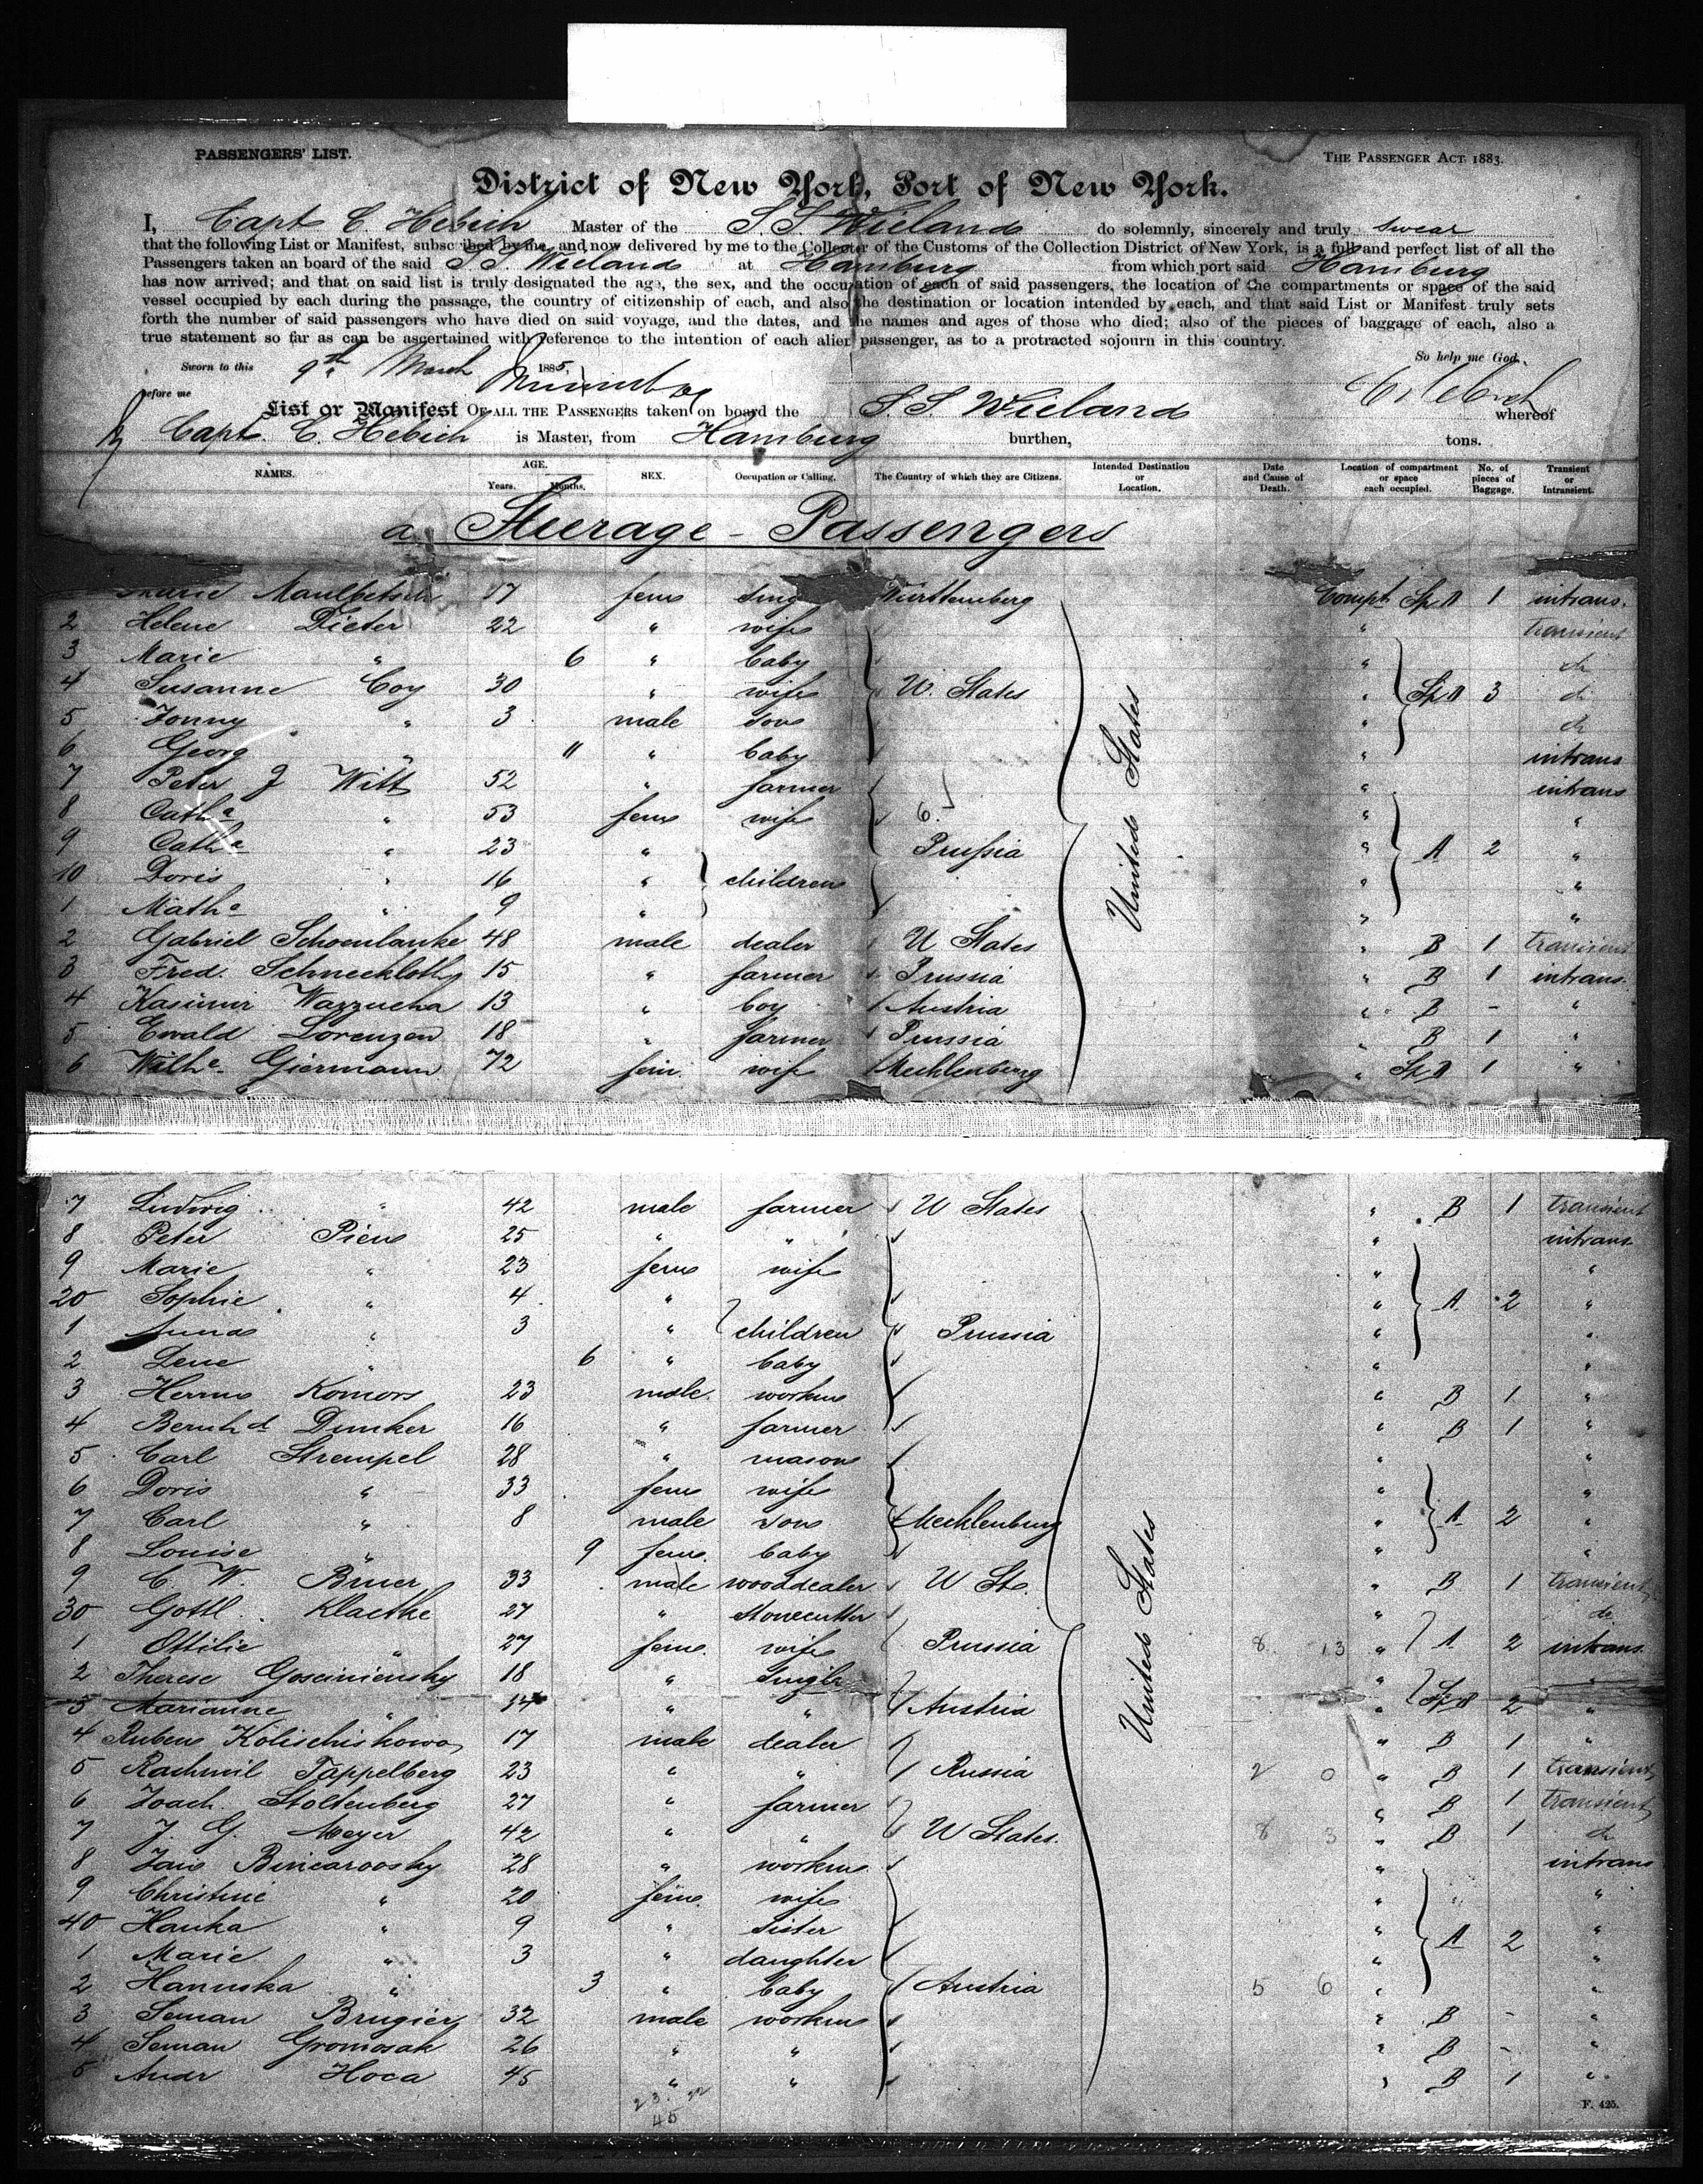 PASSENGERS' LIST. THE PASSENGER ACT, 1883.
District of New York, Port of New York.
I, Capt C. Hebich Master of the S. S. Wieland do solemnly, sincerely and truly swear
that the following List or Manifest, subscribed by me, and now delivered by me to the Collector of the Customs of the Collection District of New York, is a full and perfect list of all the
Passengers taken an board of the said S. S. Wieland at Hamburg from which port said Hamburg
has now arrived; and that on said list is truly designated the age, the sex, and the occupation of each of said passengers, the location of the compartments or space of the said
vessel occupied by each during the passage, the country of citizenship of each, and also the destination or location intended by each, and that said List or Manifest truly sets
forth the number of said passengers who have died on said voyage, and the dates, and the names and ages of those who died; also of the pieces of baggage of each, also a
true statement so far as can be ascertained with reference to the intention of each alien passenger, as to a protracted sojourn in this country.
Sworn to this 9th March 1885, So help me God.
before me C. Hebich
List or Manifest OF ALL THE PASSENGERS taken on board the S S Wieland whereof
Capt. C. Hebich is Master, from Hamburg burthen, tons.
NAMES. AGE. Years. Months. SEX. Occupation or Calling. The Country of which they are Citizens. Intended Destination or Location. Date and Cause of Death. Location of compartment or space each occupied. No. of pieces of Baggage. Transient or Intransient.
a, Steerage - Passengers
Marie Maulbetsch 17 fem Württemberg Compt Sp D 1 intrans.
2 Helene Dieter 22 " wife " transient
3 Marie " 6 " baby " do
4 Susanne Coy 30 " wife U. States " Sp D 3 do
5 Jonny " 3 male son " do
6 Georg " 11 " baby intrans
7 Peter J Witt 52 " farmer " intrans
8 Cath a " 53 fem wife 6. " "
9 Cath a " 23 " Prussia " A 2 "
10 Doris " 16 " children " "
1 Math a " 9 " " "
2 Gabriel Schoenlanke 48 male dealer U States " B 1 transient
3 Fred. Schneekloth 15 " farmer Prussia " B 1 intrans.
4 Kasimir Wazzucha 13 " boy Austria " B - "
5 Ewald Lorenzen 18 " farmer Prussia " B 1 "
6 Wilh e Giermann 72 fem. wife Mecklenburg " Sp D 1 "
United States
7 Ludwig " 42 male farmer U States " B 1 transient
8 Peter Piens 25 " " " intrans
9 Marie " 23 fem wife " "
20 Sophie " 4 " " A 2 "
1 Anna " 3 " children Prussia " "
2 Lene " 6 " baby " "
3 Herm Komors 23 male workm " B 1 "
4 Bernh d Dunker 16 " farmer " B 1 "
5 Carl Strempel 28 " mason "
6 Doris " 33 fem wife " "
7 Carl " 8 male son Mecklenburg " A 2 "
8 Louise " 9 fem. baby " "
9 C. W. Bruer 33 male wooddealer U St. " B 1 transient
30 Gottl. Klaetke 27 " stonecutter " do
1 Ottilie " 27 fem. wife Prussia 8 13 " A 2 intrans.
2 Therese Gosciniensky 18 " single " "
3 Marianne " 14 " " Austria " Sp D 2 "
4 Ruben Kolischiskowo 17 male dealer " B 1 "
5 Rachmil Tappelberg 23 " " Russia 2 0 " B 1 transient
6 Joach. Stoltenberg 27 " farmer " B 1 transient
7 J. G. Meyer 42 " " U States. 8 3 " B 1 do
8 Binearoosky 28 " workm " intrans
9 Christine " 20 fem. wife " "
40 Hanka " 9 " sister " "
1 Marie " 3 " daughter " A 2 "
2 Hanuska " 3 " baby Austria 5 6 " "
3 Seman Brugier 32 male workm " B - "
4 Seman Gromosak 26 " " " B - "
5 Andr Hoca 45 " " " B 1 "
United States
F. 425.